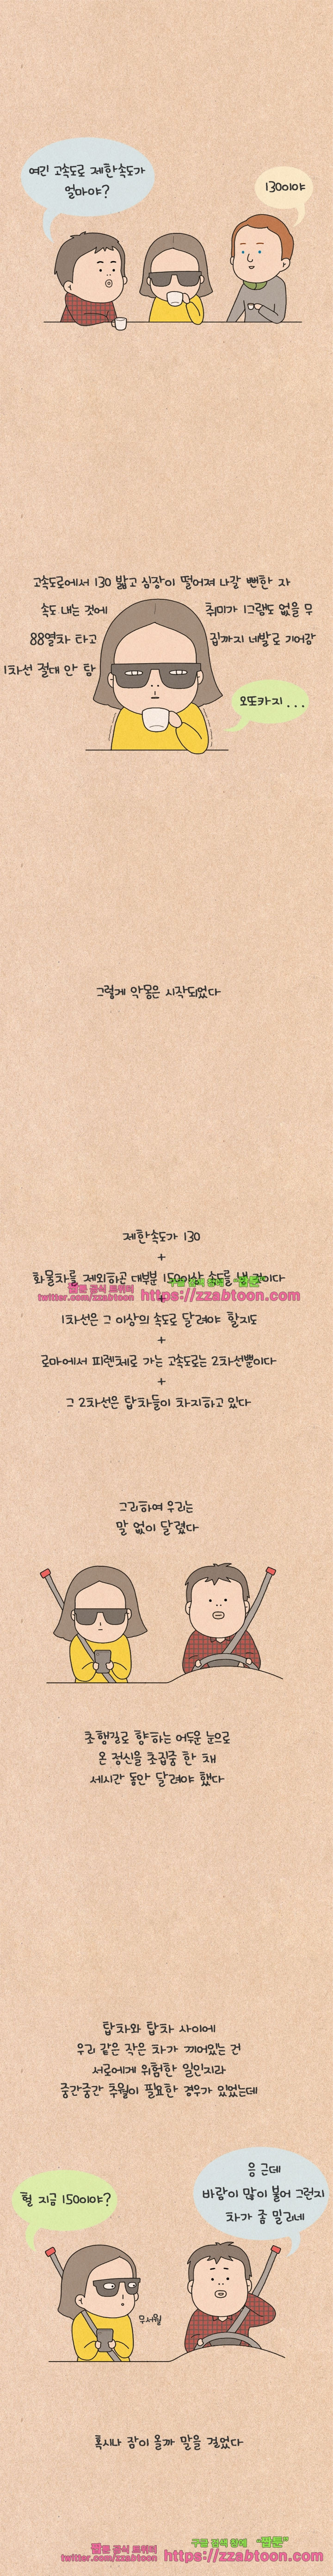 여긴 고속도로 제한속도가
얼마야?
130이야
고속도로에서 130 밟고 심장이 떨어져 나갈 뻔한 자
속도 내는 것에
취미가 1그램도 없을 무
88열차 타고
집까지 네발로 기어감
1차선 절대 안 탐
오또카지...
그렇게 악몽은 시작되었다
제한속도가 130
+
화물차를 제외하곤 대부분 150이상 속도를 낼 것이다
짭툰 공식 트위터
twitter.com/zzabtoon
"짭툰"
https://zzabtoon.com
+
1차선은 그 이상의 속도로 달려야 할지도
+
로마에서 피렌체로 가는 고속도로는 2차선뿐이다
+
그 2차선은 탑차들이 차지하고 있다
그리하여 우리는
말 없이 달렸다
초행길로 향하는 어두운 눈으로
온 정신을 초집중 한 채
세시간 동안 달려야 했다
탑차와 탑차 사이에
우리 같은 작은 차가 끼어있는 건
서로에게 위험한 일인지라
중간중간 추월이 필요한 경우가 있었는데
헐 지금 150이야?
응 근데
바람이 많이 불어 그런지
차가 좀 밀리네
무서웡
혹시나 잠이 올까 말을 걸었다
짭툰 공식 트위터
twitter.com/zzabtoon
구글 검색 창에 "짭툰"
https://zzabtoon.com